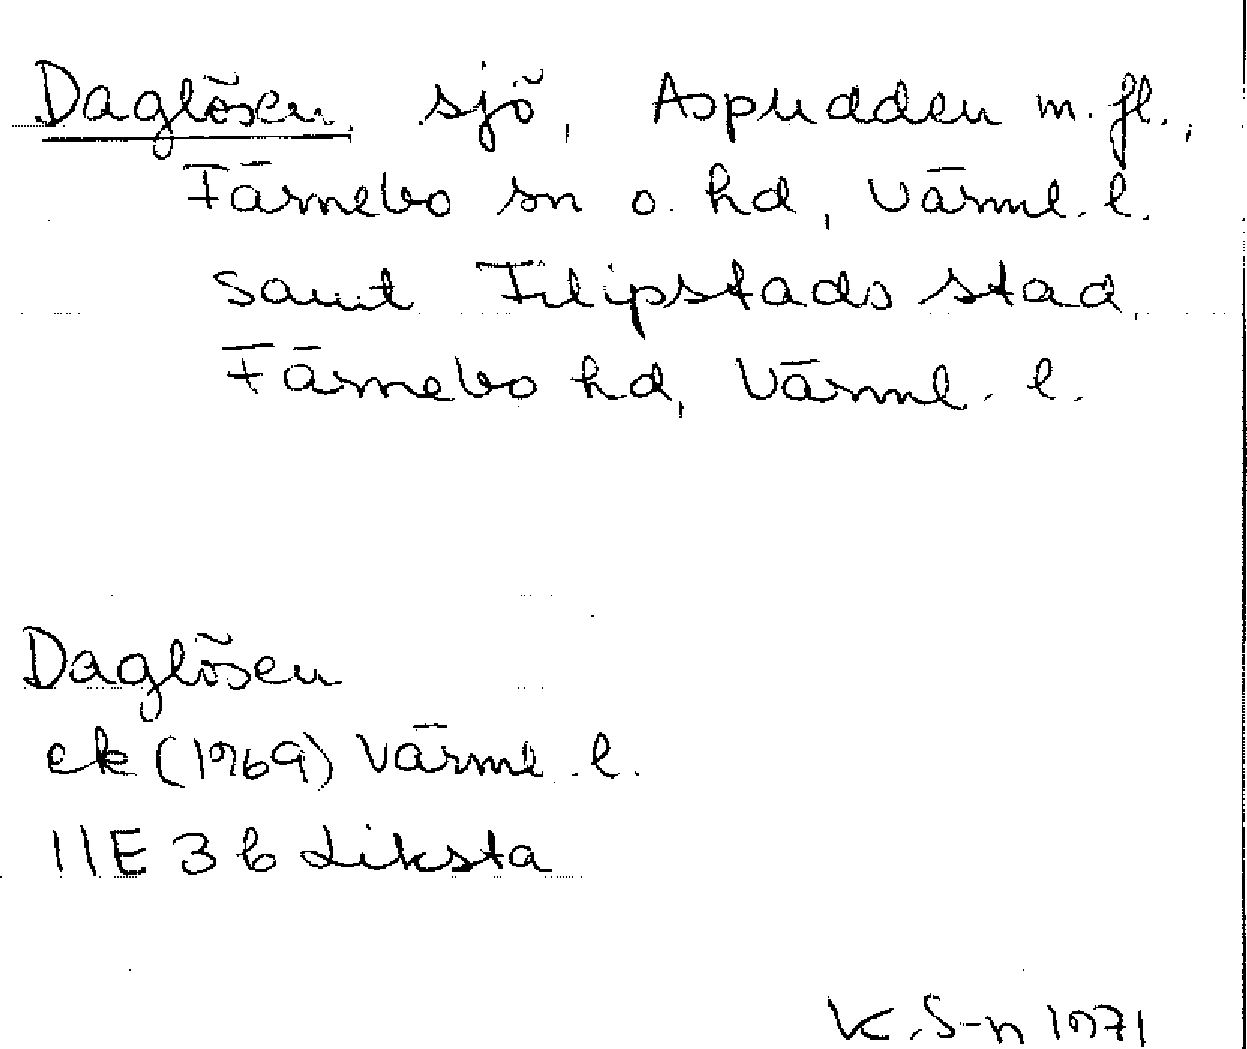 Daglösen sjö, Aspudden m.fl.,
Färnebo sn o. hd, Värml. l.
samt Filipstads stad,
Färnebo hd, Värml. l.
Daglösen
ek (1969) Värml. l.
11E 3b Liksta
K. S-n 1971